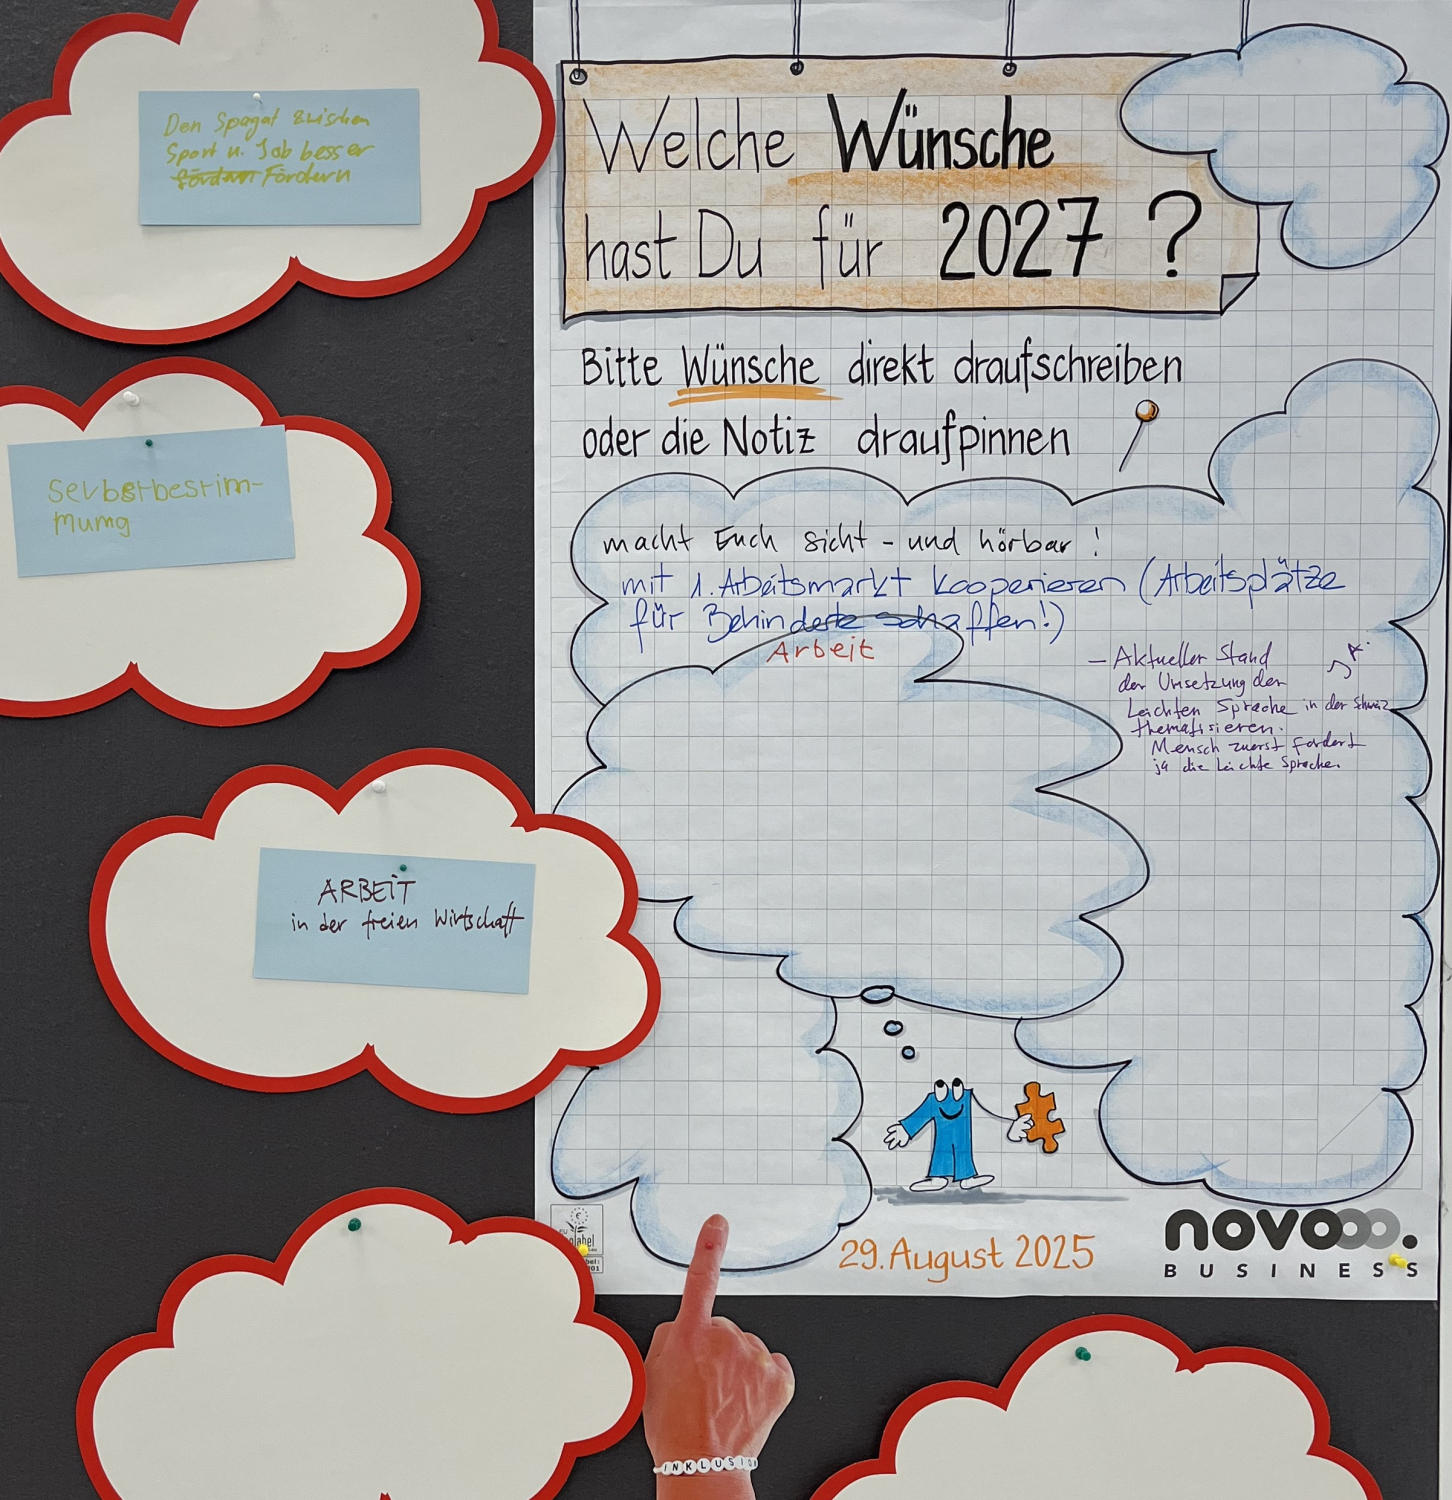 Den Spagat zwischen
Sport u. Job besser
fördern Fördern
Selbstbestim-
mumg
ARBEIT
in der freien Wirtschaft
Welche Wünsche
hast Du für 2027 ?
Bitte Wünsche direkt draufschreiben
oder die Notiz draufpinnen
macht Euch sicht - und hörbar !
mit 1. Arbeitsmarkt kooperieren (Arbeitsplätze
für Behinderte schaffen!)
Arbeit
– Aktueller Stand
der Umsetzung der
Leichten Sprache in der Schweiz
thematisieren.
Mensch zuerst fordert
ja die Leichte Sprache.
29. August 2025
novo
BUSINESS
INKLUSION